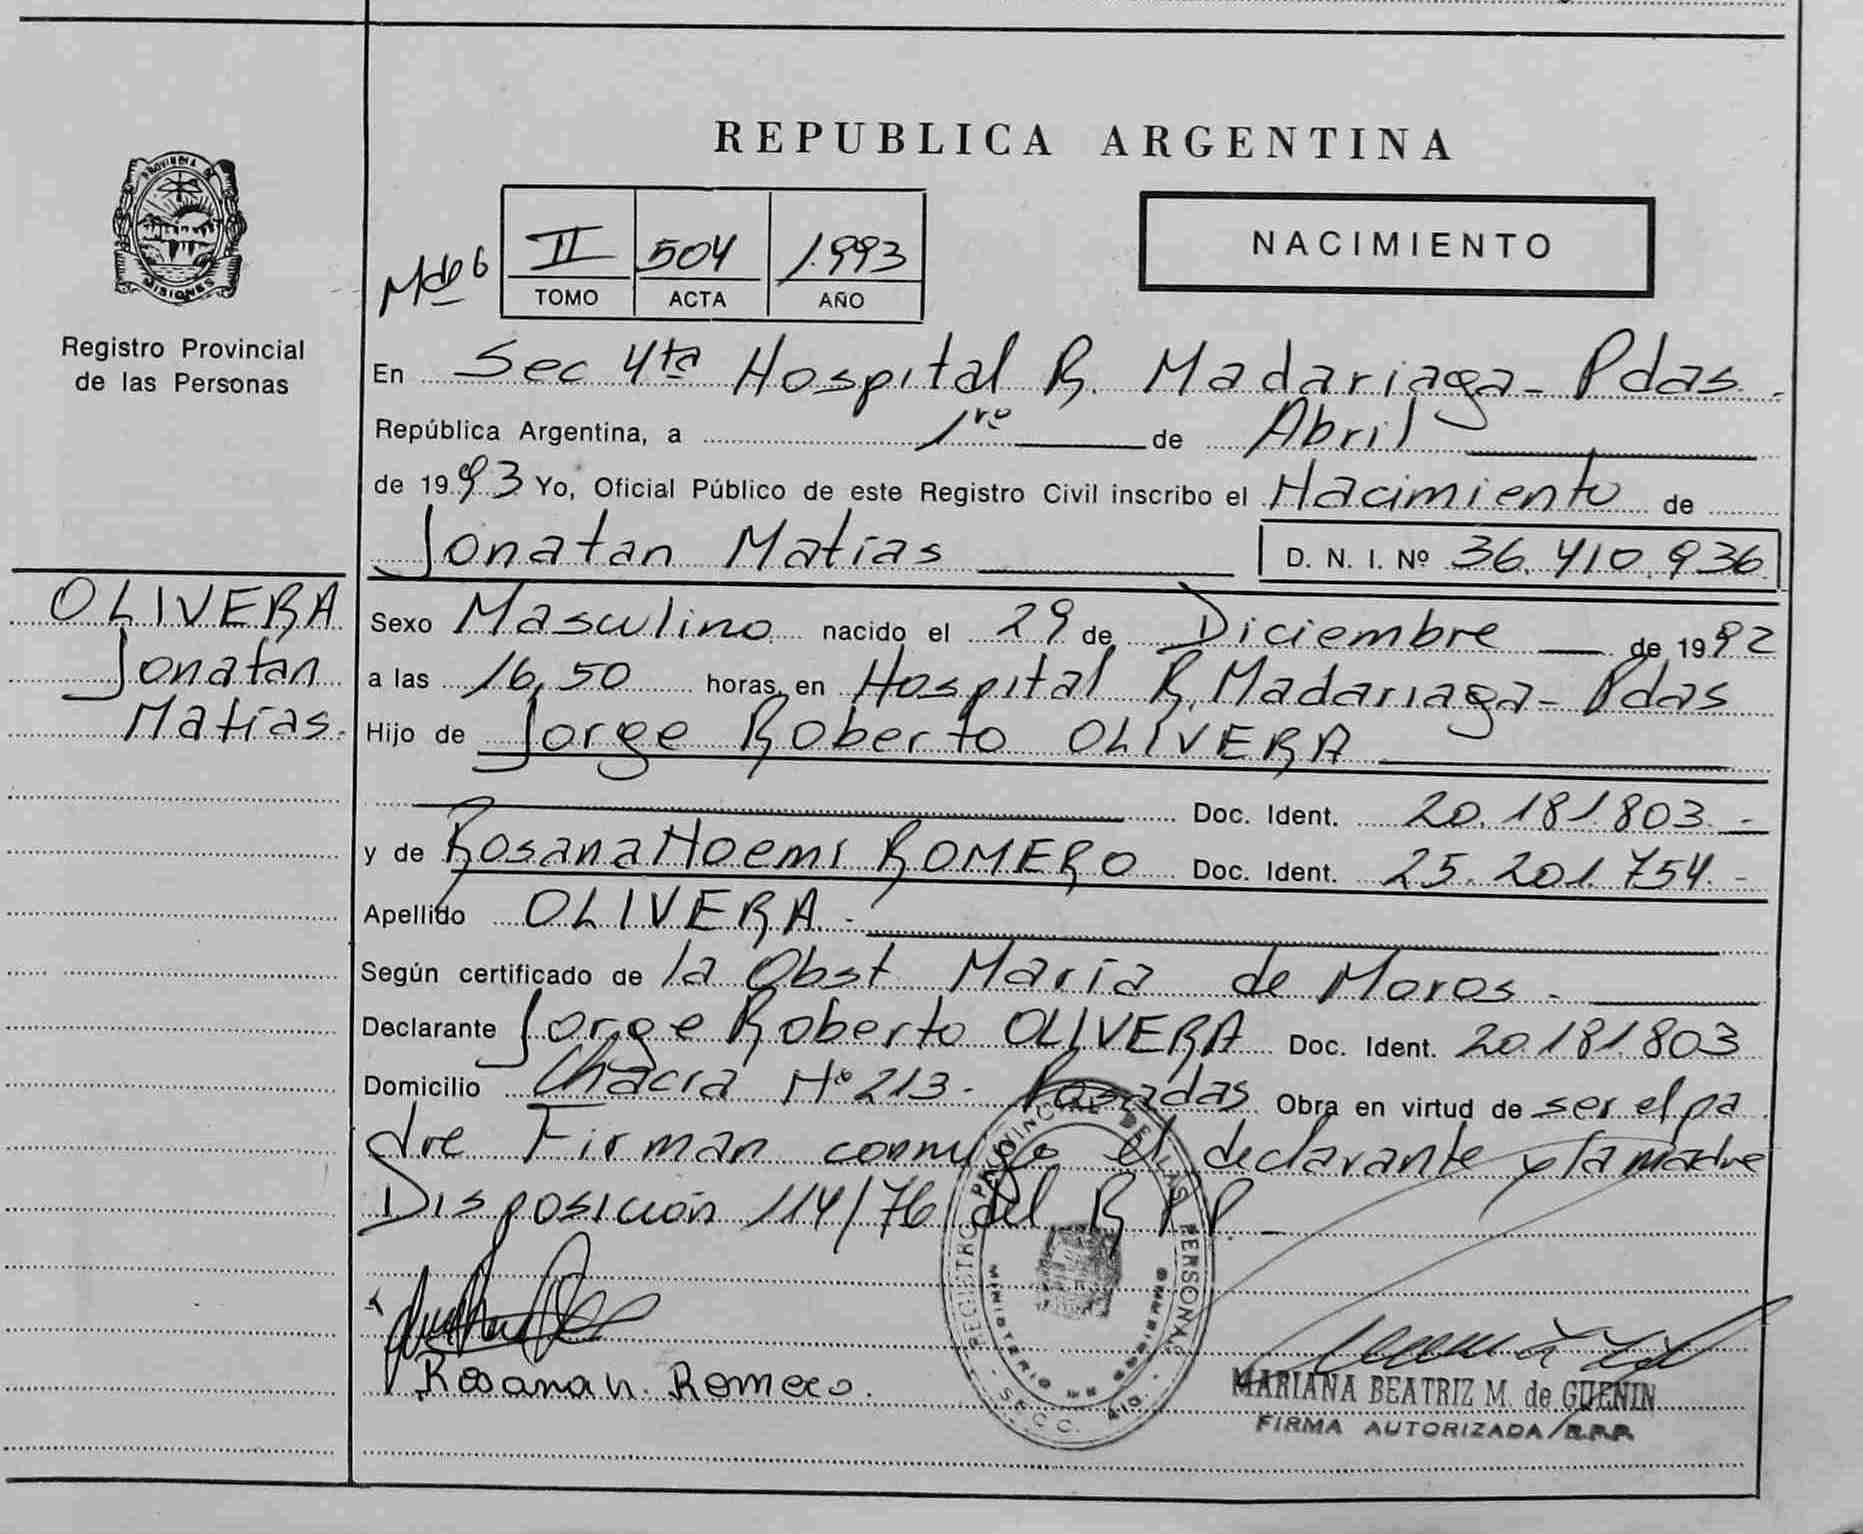 REPUBLICA ARGENTINA
PROVINCIA DE
MISIONES
Registro Provincial
de las Personas
II 504 1.993
TOMO ACTA AÑO
NACIMIENTO
En Sec 4ta Hospital R. Madariaga - Pdas.-
República Argentina, a 1ro de Abril
de 1993 Yo, Oficial Público de este Registro Civil inscribo el Nacimiento de
Jonatan Matías D. N. I. Nº 36.410.936
OLIVERA
Jonatan
Matías.-
Sexo Masculino nacido el 29 de Diciembre de 1992
a las 16,50 horas, en Hospital R. Madariaga - Pdas
Hijo de Jorge Roberto OLIVERA
Doc. Ident. 20.181.803.-
y de Rosana Noemi ROMERO Doc. Ident. 25.201.754.-
Apellido OLIVERA.-
Según certificado de la Obst María de Moros.-
Declarante Jorge Roberto OLIVERA Doc. Ident. 20.181.803
Domicilio Chacra Nº 213.- Posadas Obra en virtud de ser el pa
dre Firman conmigo el declarante y la madre
Disposición 114/76 del R P P.
Rosana N. Romero.
REGISTRO PROVINCIAL DE LAS PERSONAS
MINISTERIO DE GOBIERNO
SECC. 4ta.
MARIANA BEATRIZ M. de GUENIN
FIRMA AUTORIZADA / R.P.P.